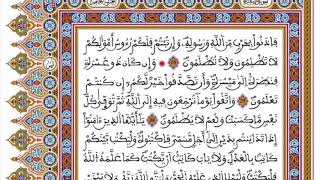 فَأْذَنُوا۟ بِحَرْبٍ مِّنَ ٱللَّهِ وَرَسُولِهِۦ وَإِن تُبْتُمْ فَلَكُمْ رُءُوسُ أَمْوَٰلِكُمْ
لَا تَظْلِمُونَ وَلَا تُظْلَمُونَ وَإِن كَانَ ذُو عُسْرَةٍ
فَنَظِرَةٌ إِلَىٰ مَيْسَرَةٍ وَأَن تَصَدَّقُوا۟ خَيْرٌ لَّكُمْ إِن كُنتُمْ
تَعْلَمُونَ وَٱتَّقُوا۟ يَوْمًا تُرْجَعُونَ فِيهِ إِلَى ٱللَّهِ ثُمَّ تُوَفَّىٰ كُلُّ
نَفْسٍ مَّا كَسَبَتْ وَهُمْ لَا يُظْلَمُونَ يَٰٓأَيُّهَا ٱلَّذِينَ ءَامَنُوٓا۟
إِذَا تَدَايَنتُم بِدَيْنٍ إِلَىٰٓ أَجَلٍ مُّسَمًّى فَٱكْتُبُوهُ وَلْيَكْتُب بَّيْنَكُمْ
كَاتِبٌۢ بِٱلْعَدْلِ وَلَا يَأْبَ كَاتِبٌ أَن يَكْتُبَ كَمَا عَلَّمَهُ ٱللَّهُ